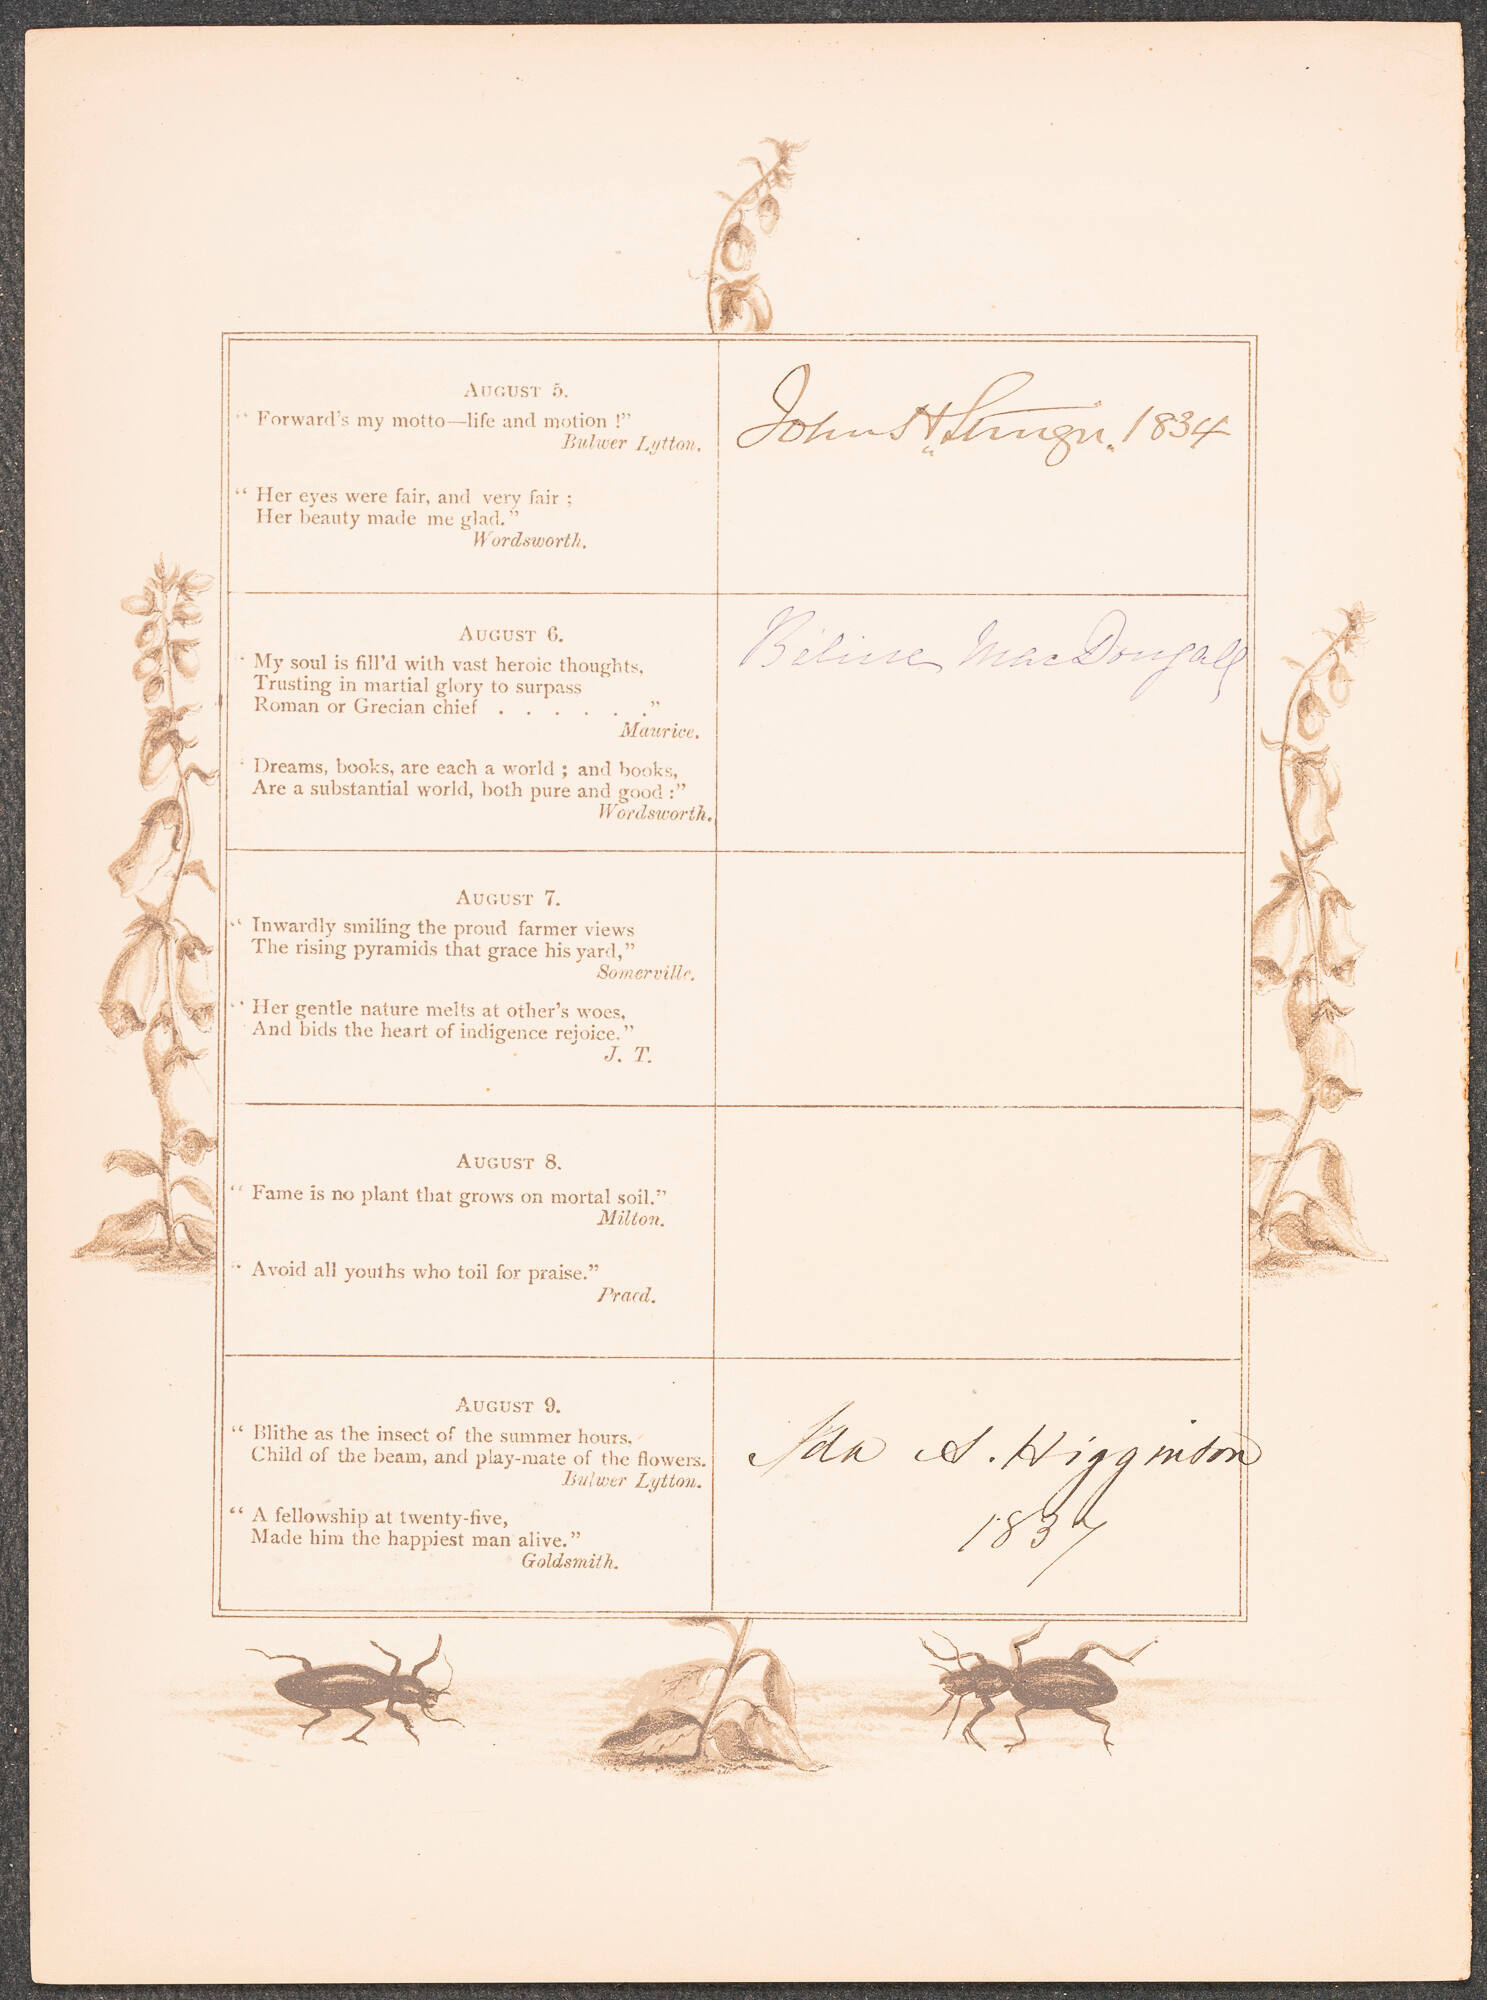 AUGUST 5.
“ Forward's my motto—life and motion !”
Bulwer Lytton.
“ Her eyes were fair, and very fair ;
Her beauty made me glad.”
Wordsworth.
John H 1834
AUGUST 6.
“ My soul is fill'd with vast heroic thoughts,
Trusting in martial glory to surpass
Roman or Grecian chief . . . . . .”
Maurice.
“ Dreams, books, are each a world ; and books,
Are a substantial world, both pure and good :”
Wordsworth.
MacDougall
AUGUST 7.
“ Inwardly smiling the proud farmer views
The rising pyramids that grace his yard,”
Somerville.
“ Her gentle nature melts at other's woes,
And bids the heart of indigence rejoice.”
J. T.
AUGUST 8.
“ Fame is no plant that grows on mortal soil.”
Milton.
“ Avoid all youths who toil for praise.”
Praed.
AUGUST 9.
“ Blithe as the insect of the summer hours,
Child of the beam, and play-mate of the flowers.
Bulwer Lytton.
“ A fellowship at twenty-five,
Made him the happiest man alive.”
Goldsmith.
Ida A. Higginson
1837